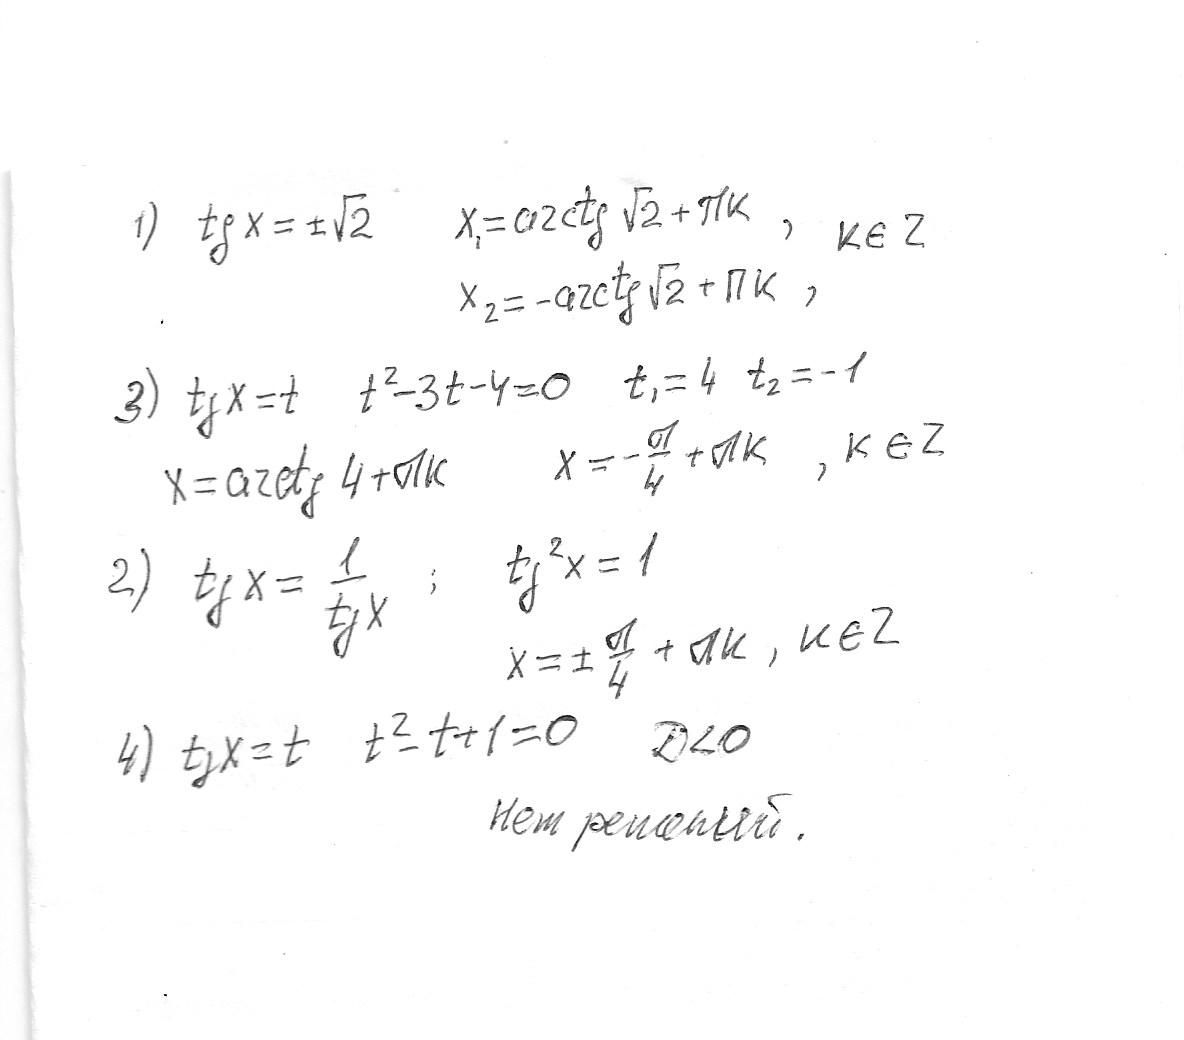 1) tg x = ±√2 x₁ = arctg √2 + πк , к ∈ Z
x₂ = -arctg √2 + πк ,
3) tg x = t t² - 3t - 4 = 0 t₁ = 4 t₂ = -1
x = arctg 4 + πк x = -π/4 + πк , к ∈ Z
2) tg x = 1/tg x ; tg²x = 1
x = ± π/4 + πк , к ∈ Z
4) tg x = t t² - t + 1 = 0 D < 0
Нет решений.